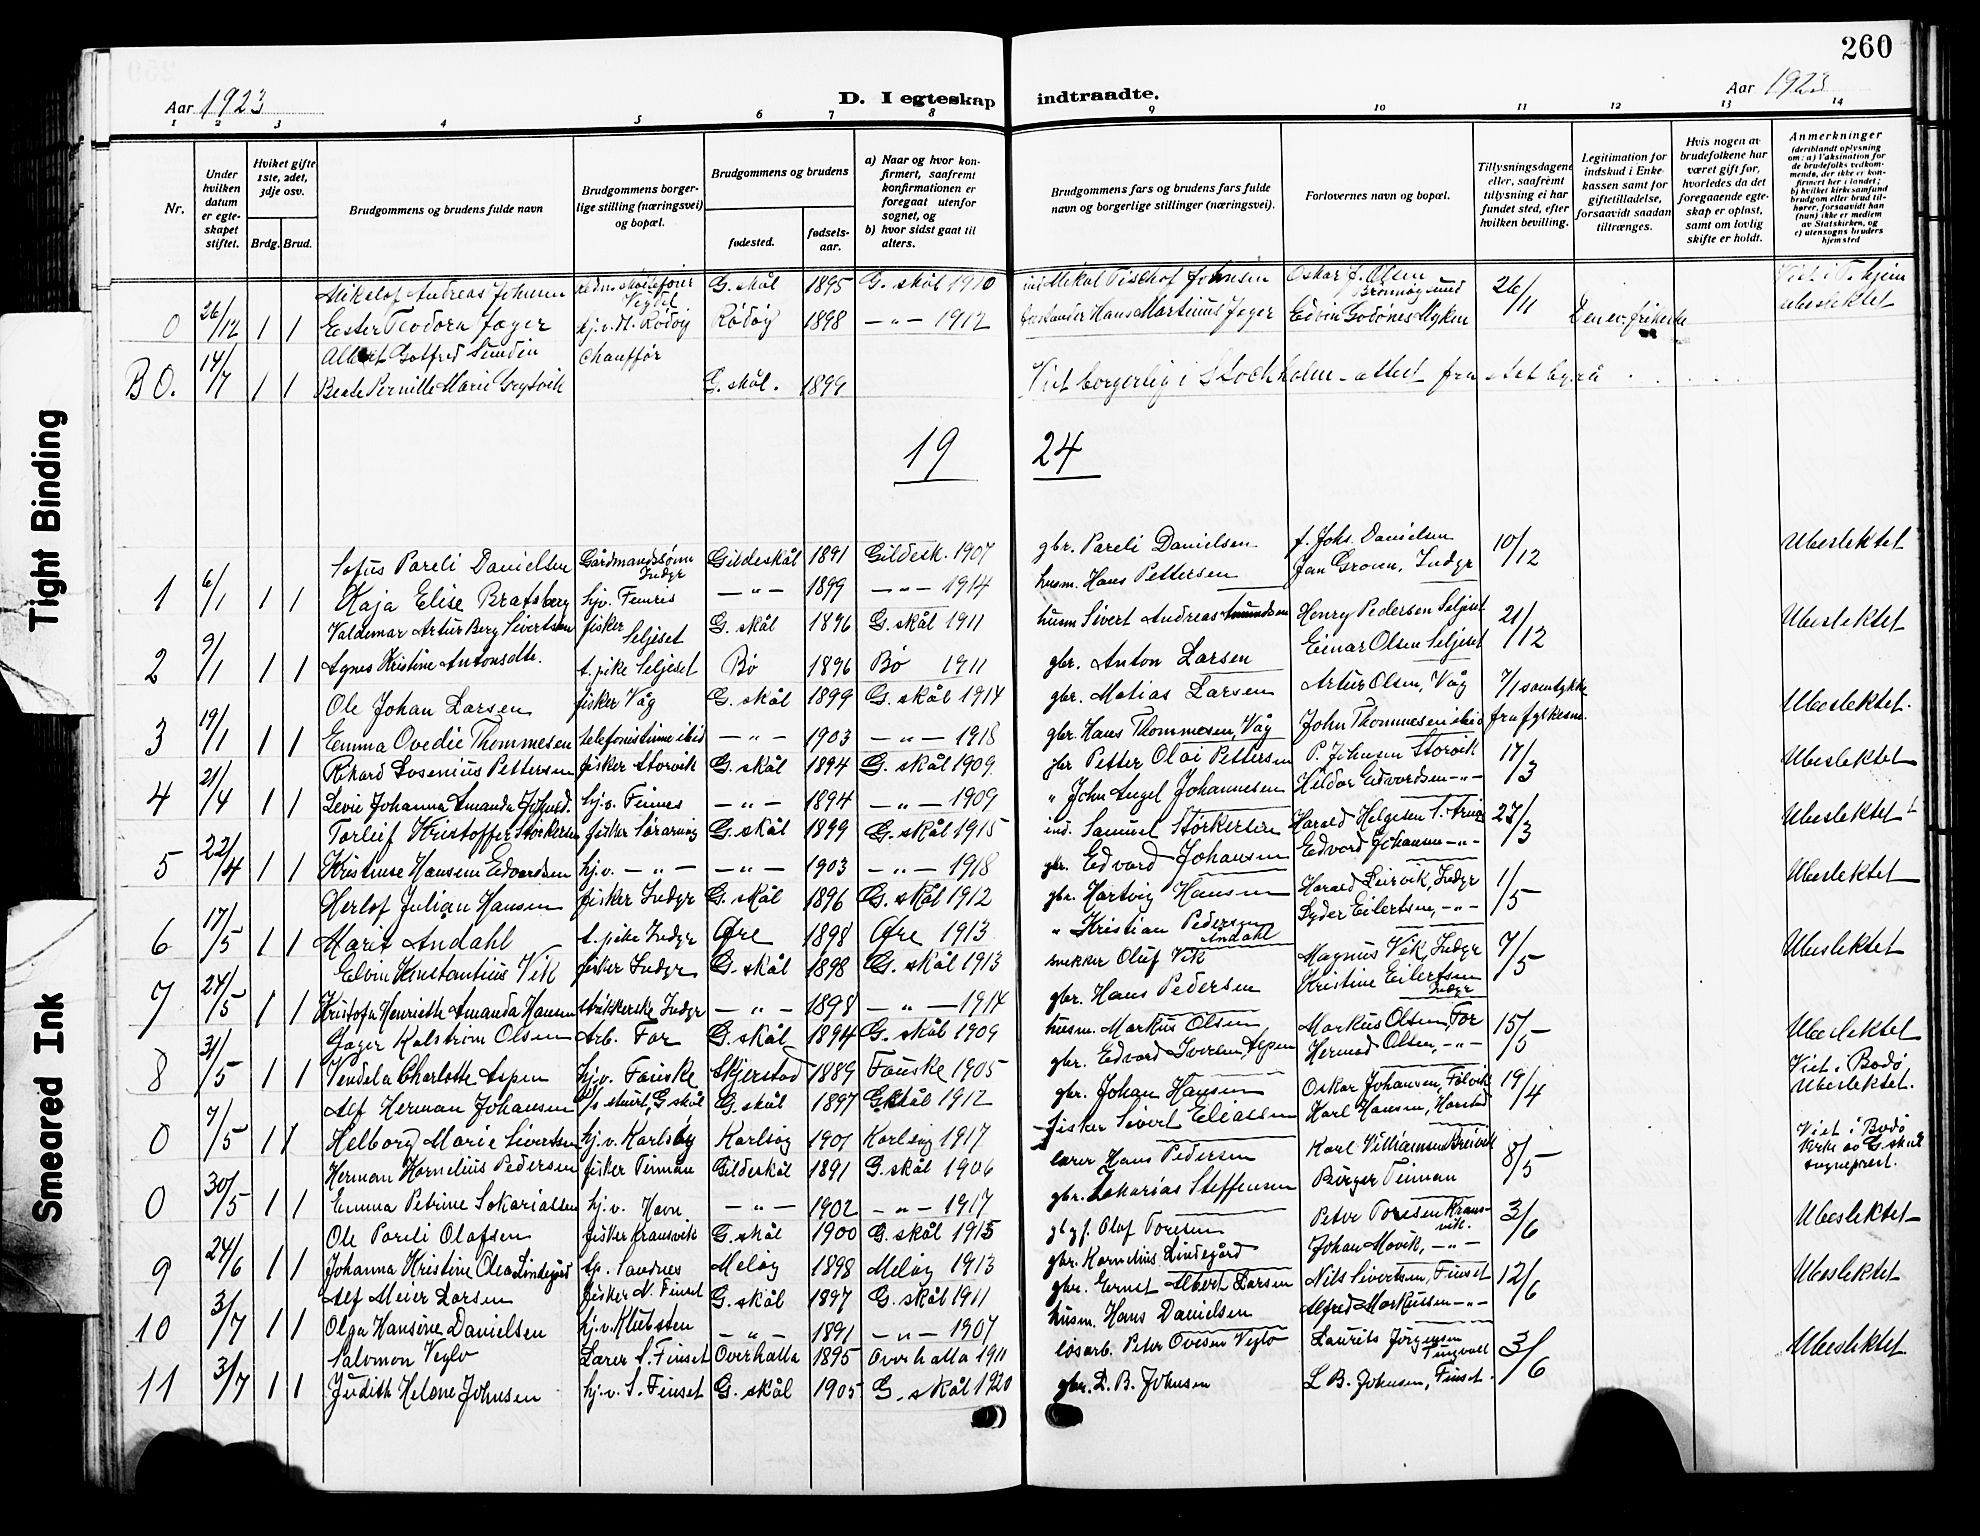 260
Aar 1923
D. I egteskap indtraadte.
Aar 1923
1 2 3 4 5 6 7 8 9 10 11 12 13 14
Nr.
Under hvilken datum er egteskapet stiftet.
Hvilket gifte 1ste, 2det, 3dje osv.
Brdg. Brud.
Brudgommens og brudens fulde navn
Brudgommens borgerlige stilling (næringsvei) og bopæl.
Brudgommens og brudens
fødested.
fødselsaar.
a) Naar og hvor konfirmert, saafremt konfirmationen er foregaat utenfor sognet, og
b) hvor sidst gaat til alters.
Brudgommens fars og brudens fars fulde navn og borgerlige stillinger (næringsvei).
Forlovernes navn og bopæl.
Tillysningsdagene eller, saafremt tillysning ei har fundet sted, efter hvilken bevilling.
Legitimation for indskud i Enkekassen samt for giftetilladelse, forsaavidt saadan tiltrænges.
Hvis nogen av brudefolkene har været gift før, hvorledes da det foregaaende egteskap er opløst, samt om lovlig skifte er holdt.
Anmerkninger (deriblandt oplysning om: a) Vaksination for de brudefolks vedkommende, der ikke er konfirmert her i landet; b) hvilket kirkesamfund brudgom eller brud tilhører, forsaavidt han (hun) ikke er medlem av Statskirken, og c) utensogns bruders hjemsted
Andreas Johnsen G. skål 1895 G. skål 1910 Johnsen Oskar J. Olsen Brønnøysund 26/11
0 26/12 1 1 Ester Teodora Jæger hj.v. N. Rødøy Rødøy 1898 — " — 1912 Hans Martinus Jæger Edvin Godønes Myken Ubeslektet
14/7 Albert Gotfred Sundin Chauffør
B0. 1 1 Beate Pernille Marie Grytvik G. skål. 1899 Viet borgerlig i Stockholm - attest fra
19 24
Sofus Pareli Danielsen Gårdmandssønn Indyr Gildeskål 1891 Gildesk. 1907 gbr. Pareli Danielsen f. Johs. Danielsen 10/12 Ubeslektet
1 6/1 1 1 Kaja Elise Bratsberg hj.v. Femris — " — 1899 — " — 1914 husm. Hans Pettersen Jan Groven, Indyr
Valdemar Artur Berg Sivertsen fisker Seljeset G. skål 1896 G. skål 1911 husm Sivert Andreas Amundsen Henry Pedersen Seljeset 21/12 Ubeslektet
2 9/1 1 1 Agnes Kristine Antonsdtr. t. pike Seljeset Bø 1896 Bø 1911 gbr. Anton Larsen Einar Olsen Seljeset
Ole Johan Larsen fisker Våg G. skål 1899 G. skål 1914 gbr. Matias Larsen Artur Olsen, Våg 7/1 samtykke Ubeslektet.
3 19/1 1 1 Emma Ovedie Thommesen telefonistinne ibid — " — 1903 — " — 1918 gbr. Hans Thommesen, Våg John Thommesen ibid fra fylkesm.
Rikard Losenius Pettersen fisker Storvik G. skål 1894 G. skål 1909 gbr Petter Olai Pettersen P. Johnsen Storvik 17/3 Ubeslektet
4 21/4 1 1 Levie Johanna Amanda Johnsd. hj.v. Finnes — " — 1894 — " — 1909 " John Angel Johannesen Hildor Edvardsen — " —
Torleif Kristoffer Størkersen fisker Sørarnøy G. skål 1899 G. skål 1915 ind. Samuel Størkersen Harald Helgesen S. Arnøy 23/3 Ubeslektet
5 22/4 1 1 Kristine Hansine Edvardsen hj.v. — " — — " — 1903 — " — 1918 gbr. Edvard Johansen Edvard Johansen — " —
Herlof Julian Hansen fisker Indyr G. skål 1896 G. skål 1912 gbr. Hartvig Hansen Harald Leirvik, Indyr 1/5 Ubeslektet
6 17/5 1 1 Marit Andahl t. pike Indyr Øre 1898 Øre 1913 " Kristian Pedersen Andahl Syder Eilertsen, — " —
Edvin Konstantius Vik fisker Indyr G. skål 1898 G. skål 1913 snekker Oluf Vik Magnus Vik, Indyr 7/5 Ubeslektet
7 24/5 1 1 Kristofa Henriette Amanda Hansen strikkerske Indyr — " — 1898 — " — 1914 gbr. Hans Pedersen Kristine Eilertsen Indyr
Jager Kalstrøm Olsen Arb. For G. skål 1894 G. skål 1909 husm. Markus Olsen Markus Olsen, For 15/5 Ubeslektet
8 31/5 1 1 Vendela Charlotte Aspen hj.v. Fauske Skjerstad 1889 Fauske 1905 gbr. Edvard Iversen Aspen Hermod Olsen, — " — Viet i Bodø
Alf Herman Johansen G. skål G. skål 1897 G. skål 1912 gbr. Johan Hansen Oskar Johansen, Følvik 19/4 Ubeslektet.
0 7/5 1 1 Helborg Marie Sivertsen hj.v. Karlsøy Karlsøy 1901 Karlsøy 1917 fisker Sivert Eliassen Karl Hansen, Harstad
Herman Kornelius Pedersen fisker Finnan Gildeskål 1891 G. skål 1906 lærer Hans Pedersen Karl Villiamsen Breivik 8/5 Viet i Bodø kirke av G.skål sogneprest.
0 30/5 1 1 Emma Petrine Sakariassen hj.v. Havn — " — 1902 — " — 1917 gbr. Zakarias Steffensen Birger Finnan
Ole Pareli Olafsen fisker Kransvik G. skål 1900 G. skål 1915 Olaf Toresen Peter Toresen Kransvik. 3/6 Ubeslektet
9 24/6 1 1 Johanna Kristine Olea Lindegård tp. Sandnes Meløy 1898 Meløy 1913 gbr. Kornelius Lindegård Johan Movik, — " —
Alf Meier Larsen fisker N. Finset G. skål 1897 G. skål 1911 gbr. Ernst Albert Larsen Nils Sivertsen, Finset 12/6 Ubeslektet
10 3/7 1 1 Olga Hansine Danielsen hj.v. Klubsten — " — 1891 — " — 1907 husm. Hans Danielsen Alfred Markussen — " —
Salomon Veglo Lærer S. Finset Overhalla 1895 Overhalla 1911 løsarb. Peter Ovesen Veglo Laurits Jørgensen Tungvall 3/6 Ubeslektet
11 3/7 1 1 Judith Helene Johnsen hj.v. S. Finset G. skål 1905 G. skål 1920 gbr. L. B. Johnsen L B. Johnsen, Finset.
Tight Binding
Smeared Ink